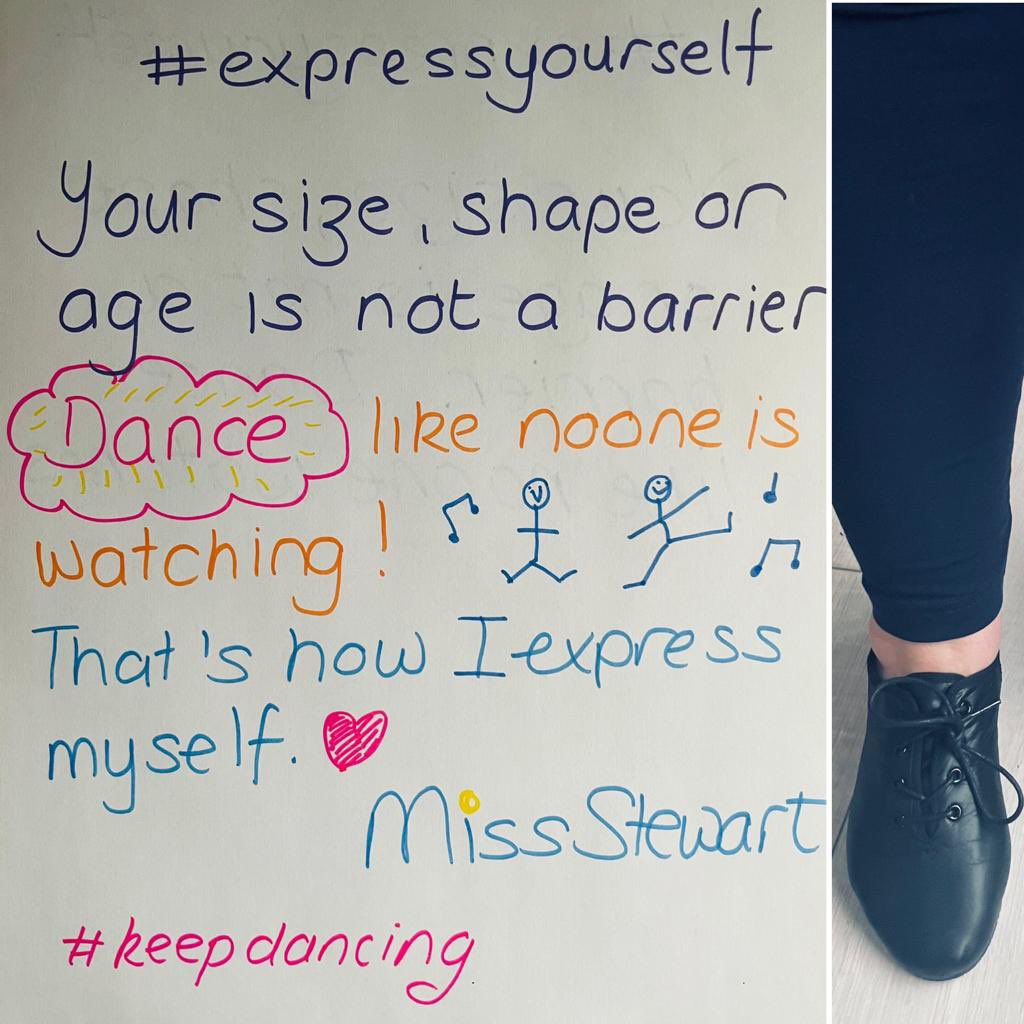 #expressyourself
Your size, shape or
age is not a barrier
Dance like noone is
watching!
That's how I express
myself.
Miss Stewart
#keepdancing